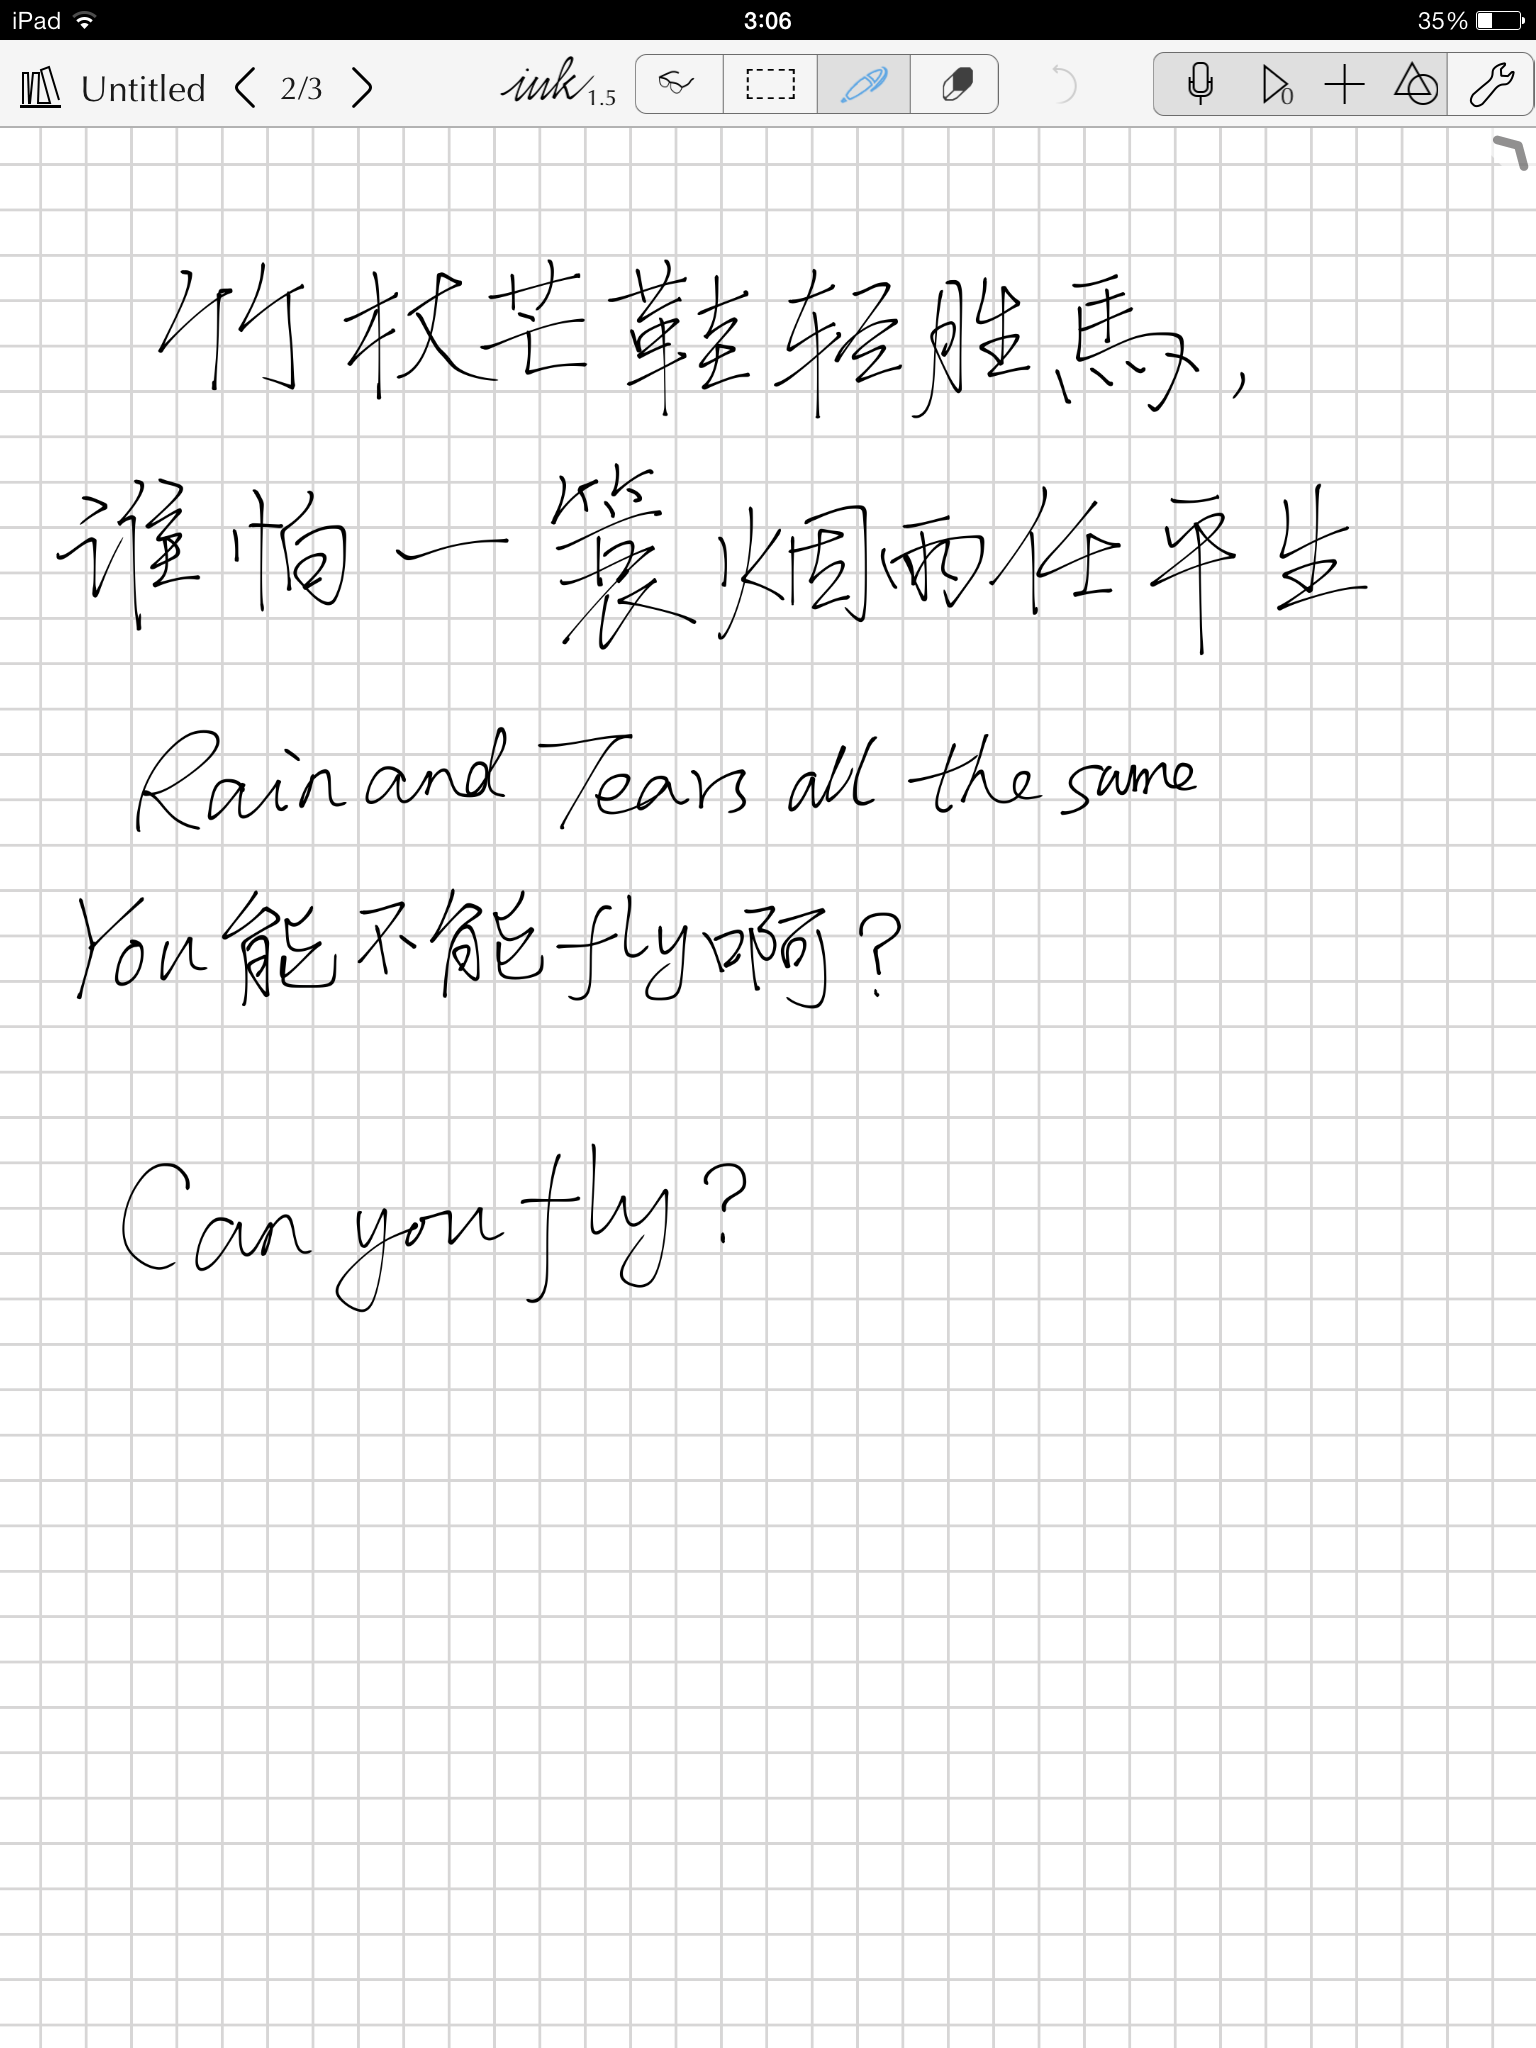 iPad 3:06 35%
Untitled 2/3 ink 1.5 0
竹杖芒鞋轻胜馬，
谁怕一蓑烟雨任平生
Rain and Tears all the same
You能不能fly啊？
Can you fly？